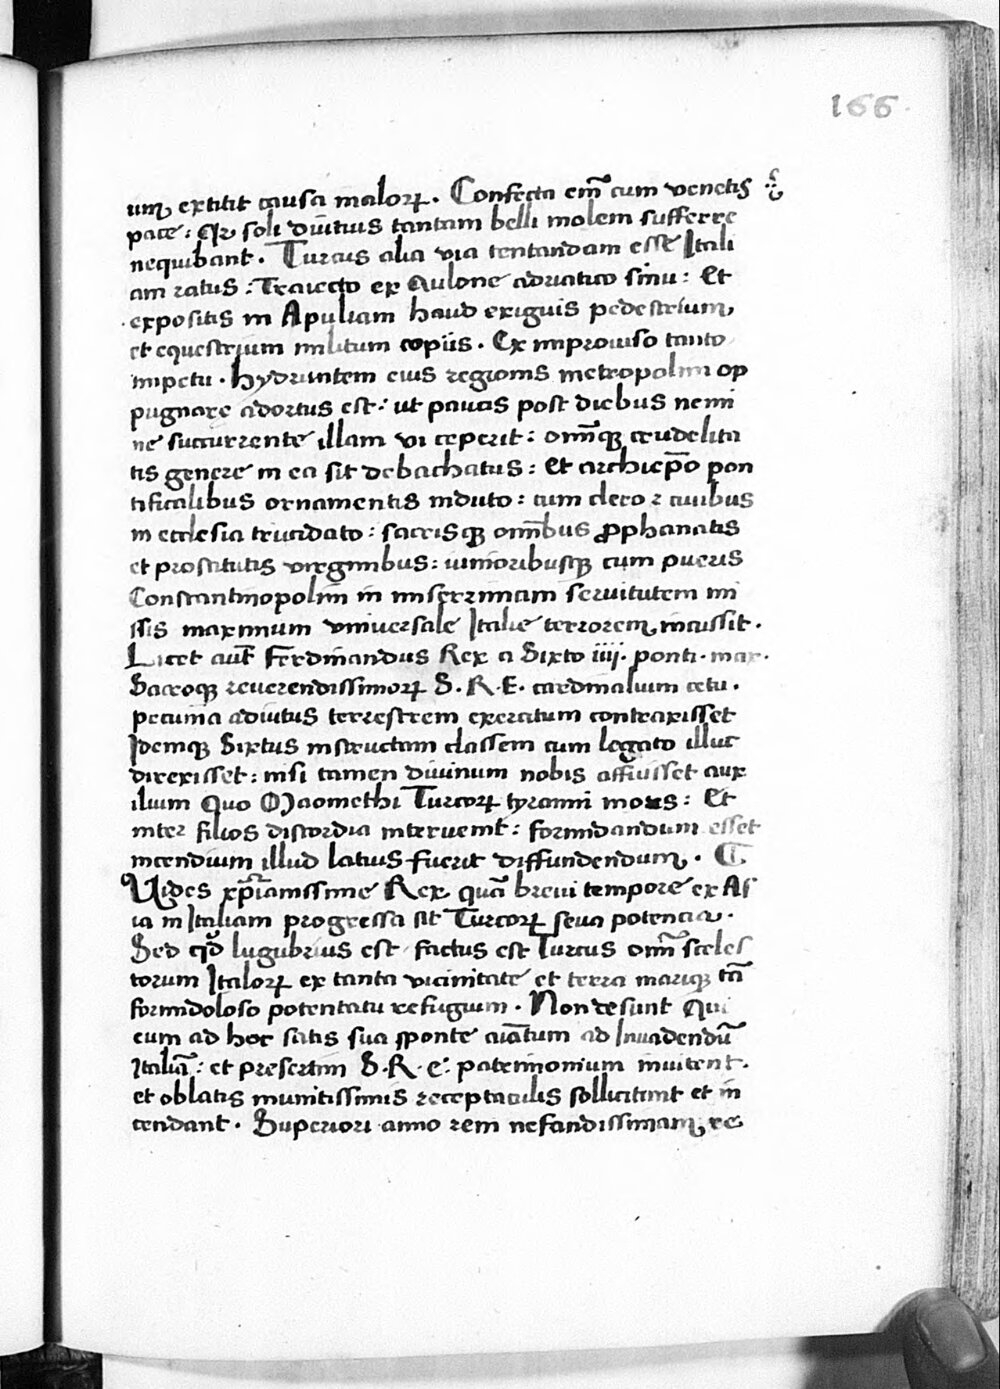 166
um extitit causa maloꝝ. Confecta em̄ cum venetis
pace: Qꝫ soli diutius tantam belli molem sufferre
nequibant. Turcus alia via tentandam esse Itali
am ratus: Traiecto ex Aulone adriatico sinu: Et
expositis in Apuliam haud exiguis pedestrium,
et equestrium militum copiis. Ex improuiso tanto
impetu. hydruntem eius regionis metropolim op
pugnare adortus est: ut paucis post diebus nemi
ne succurrente illam vi ceperit: om̄iqꝫ crudelita
tis genere in ea sit debachatus: Et archiep̄o pon
tificalibus ornamentis induto: cum clero ⁊ ciuibus
in ecclesia trucidato: sacrisqꝫ om̄ibus ꝓphanatis
et prostitutis virginibus: iunioribusqꝫ cum pueris
Constantinopolim in miserrimam seruitutem mi
ssis maximum vniuersale Italie terrorem incussit.
Licet aut̄ Ferdinandus Rex a Sixto iiii. ponti. max.
Sacroqꝫ reuerendissimoꝝ S. R. E. cardinalium cetu.
pecunia adiutus terrestrem exercitum contraxisset
Idemqꝫ Sixtus instructam classem cum legato illuc
direxisset: nisi tamen diuinum nobis affuisset aux
ilium Quo Maomethi Turcoꝝ tyranni mors: Et
inter filios discordia interuenit: formidandum esset
incendium illud latius fuerit diffundendum.
Uides xp̄ianissime Rex quā breui tempore ex As
ia in Italiam progressa sit Turcoꝝ seua potencia.
Sed qd̄ lugubrius est factus est Turcus om̄ sceles
torum Italoꝝ ex tanta vicinitate et terra mariqꝫ tā
formidoloso potentatu refugium. Non desunt Qui
eum ad hoc satis sua sponte aīatum ad Inuadendū
Italiā: et presertim S. R. E: patrimonium inuitent.
et oblatis munitissimis receptaculis sollicitent et in
cendant. Superiori anno rem nefandissimam re